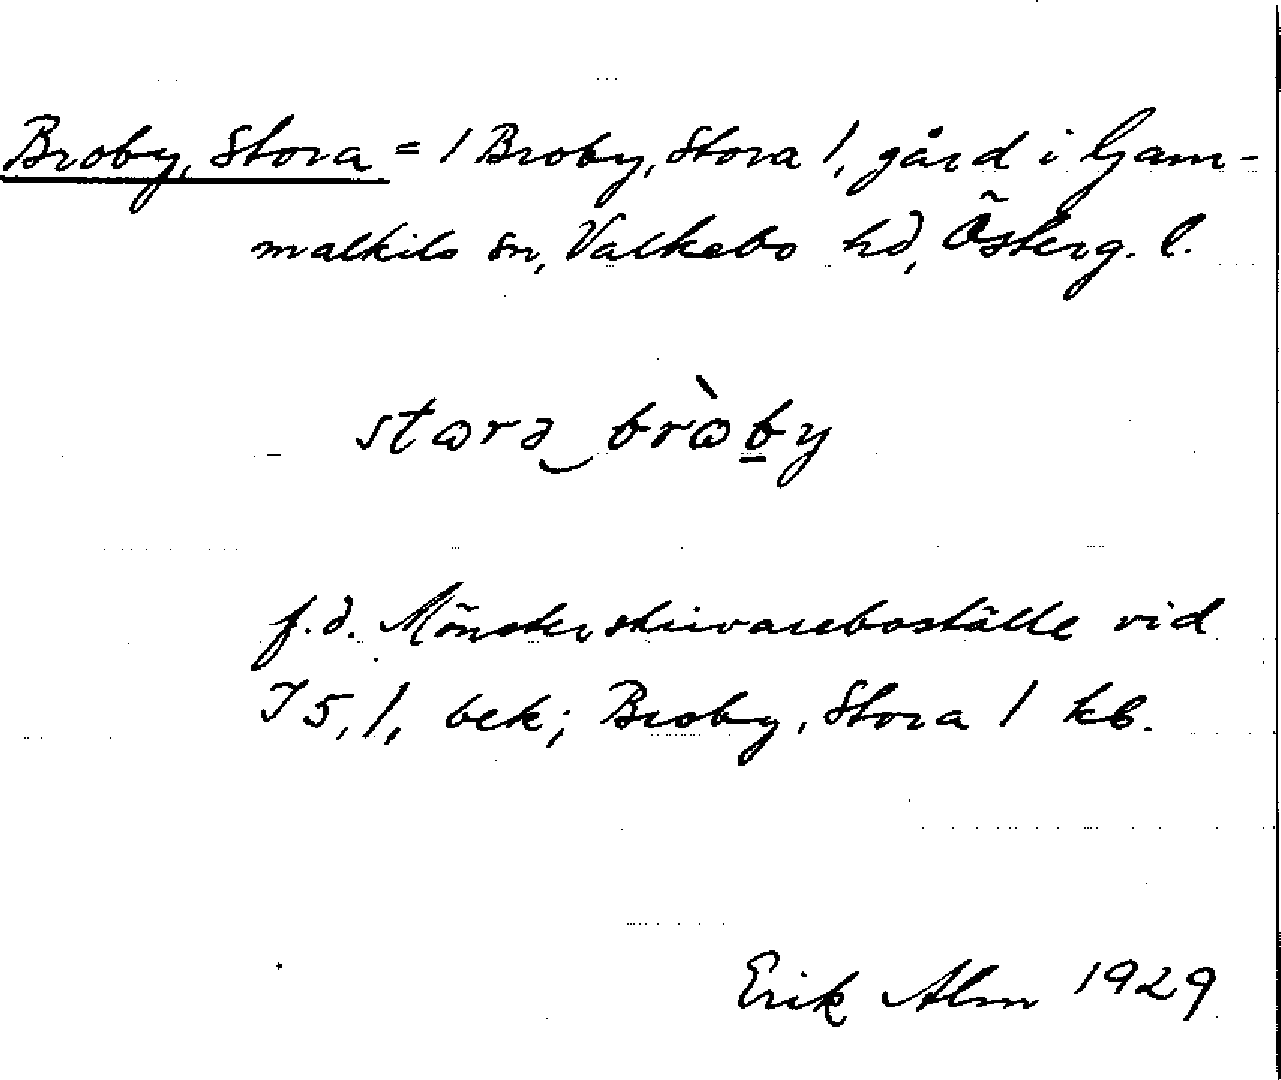 Broby, Stora = / Broby, Stora /, gård i Gam-
malkils sn, Valkebo hd, Österg. l.
storə bròby
f.d. Mönsterskrivareboställe vid
I 5, /, bek; Broby, Stora / kb.
Erik Alm 1929